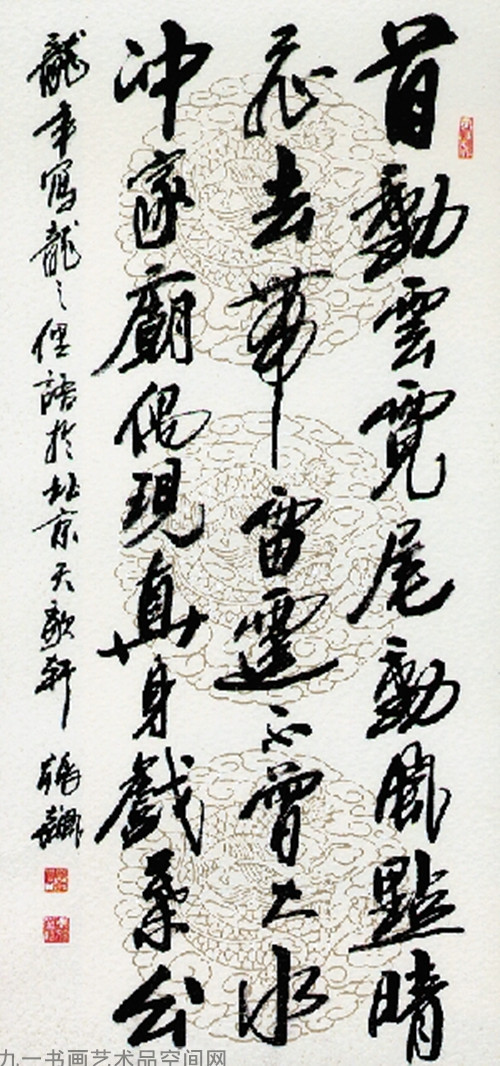 首動雲霓尾動風點晴
飛去帶雷霆不曾大水
冲家廟偶現真身戲葉公
龍年寫龍之俚語於北京天歌軒 張飆
九一书画艺术品空间网